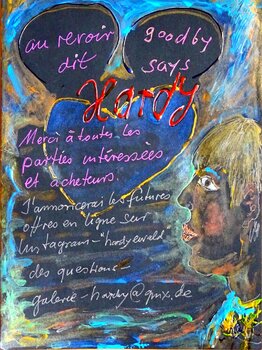 au revoir
dit
goodby
says
Hardy
Merci à toutes les
parties intéressées
et acheteurs.
J'annoncerai les futures
offres en ligne sur
Instagram - "hardyewald"
des questions -
galerie-hardy@gmx.de